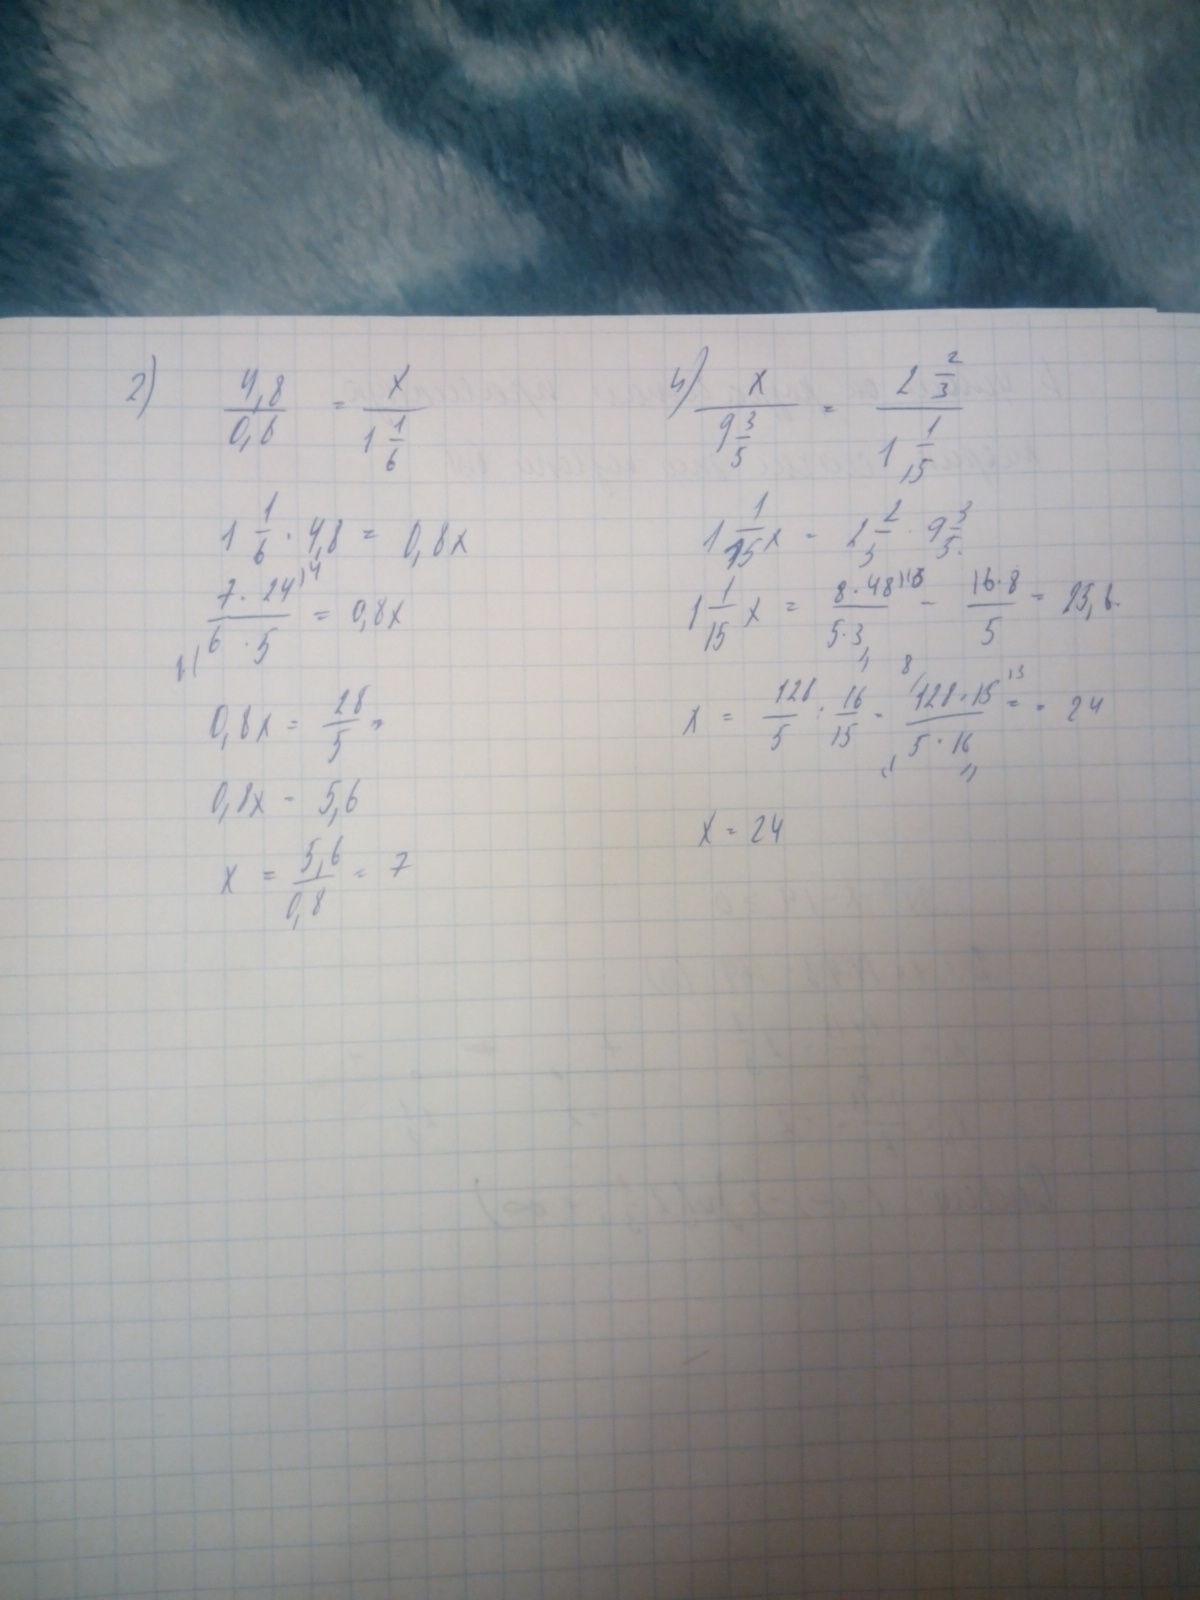 2) 4,8/0,6 = x/1 1/6
1 1/6 · 4,8 = 0,8x
7 · 24/6 · 5 = 0,8x
0,8x = 28/5
0,8x = 5,6
x = 5,6/0,8 = 7
4) x/9 3/5 = 2 2/3/1 1/15
1 1/15 x = 2 2/3 · 9 3/5
1 1/15 x = 8 · 48/5 · 3 = 16 · 8/5 =
x = 128/5 : 16/15 = 128 · 15/5 · 16 = 24
x = 24